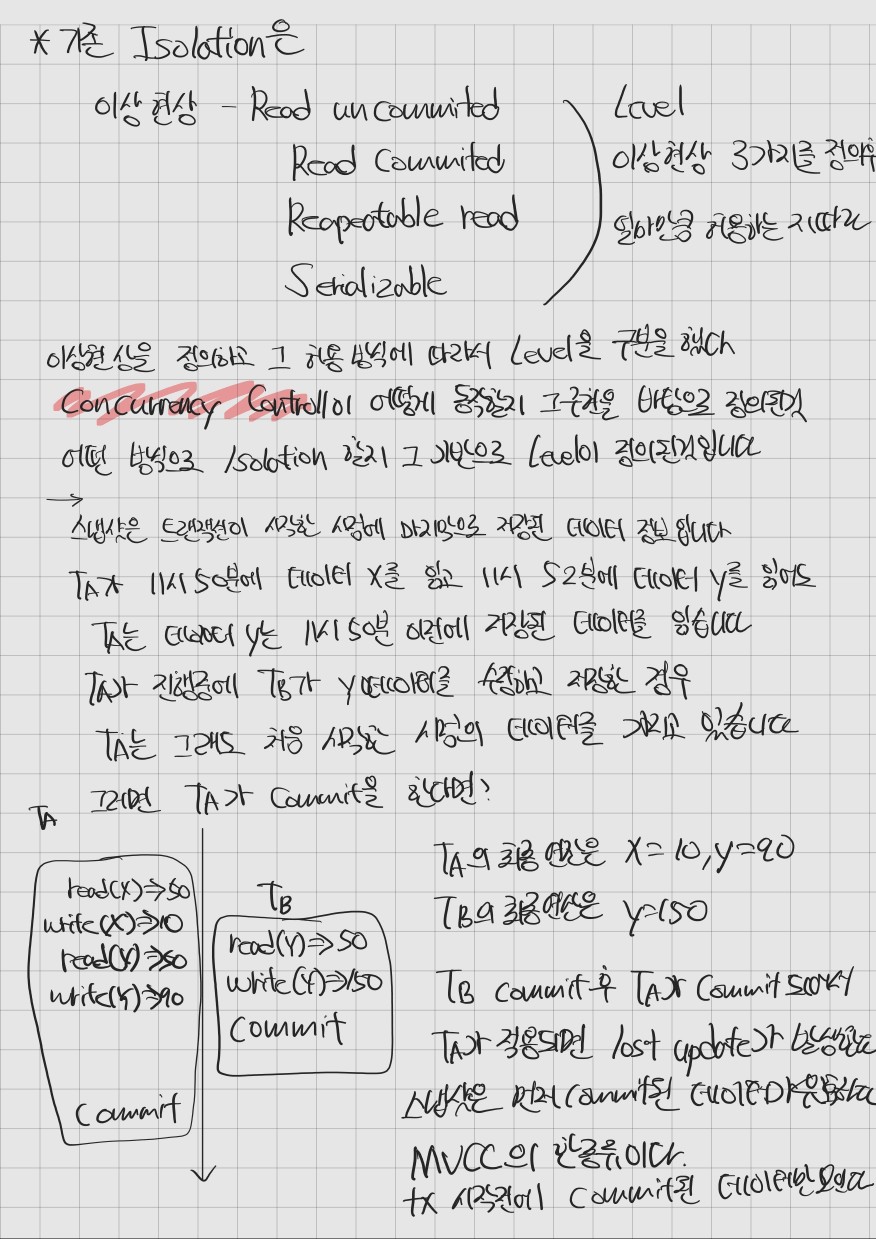 * 기존 Isolation은
이상현상 - Read uncommited
Read Commited
Reapeatable read
Serializable
Level
이상현상 3가지를 정의후
얼마만큼 허용하는 지따라
이상현상을 정의하고 그 허용 방식에 따라서 Level을 구분을 했다
Concurrency Controll이 어떻게 동작할지 그구현을 바탕으로 정의된것
어떤 방식으로 Isolation 할지 그 기반으로 Level이 정의된것입니다
→
스냅샷은 트랜잭션이 시작한 시점에 마지막으로 저장된 데이터 정보입니다
TA가 11시 50분에 데이터 X를 읽고 11시 52분에 데이터 Y를 읽어도
TA는 데이터 Y는 11시 50분 이전에 저장된 데이터를 읽습니다
TA가 진행중에 TB가 Y데이터를 수정하고 저장한 경우
TA는 그래도 처음 시작한 시점의 데이터를 가지고 있습니다
그러면 TA가 Commit을 한다면?
TA
read(X)⇒50
write(X)⇒10
read(Y)⇒50
write(Y)⇒90
Commit
TB
read(Y)⇒50
write(Y)⇒150
Commit
TA의 최종 연산은 X=10, Y=90
TB의 최종연산은 Y=150
TB commit 후 TA가 Commit 되어서
TA가 적용되면 lost update가 발생한다
스냅샷은 먼저 Commit된 데이터만 유효하다
MVCC의 한종류이다.
tx 시작전에 Commit된 데이터만 보인다